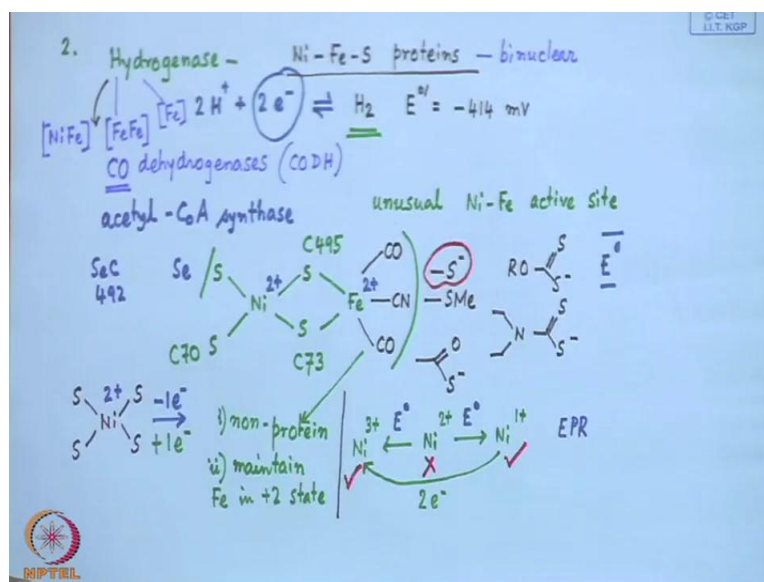 © CET
I.I.T. KGP
2. Hydrogenase – Ni-Fe-S proteins – binuclear
[NiFe] [FeFe] [Fe] 2H⁺ + 2e⁻ ⇌ H₂ E°' = -414 mV
CO dehydrogenases (CODH)
acetyl-CoA synthase unusual Ni-Fe active site
SeC Se S C495 S CO –S⁻ RO S S⁻ E°
492 Ni 2+ Fe 2+ –CN –SMe
C70 S S C73 CO O S⁻ N S S⁻
S S Ni 2+ S S -1e⁻ +1e⁻
i) non-protein
ii) maintain
Fe in +2 state
Ni³⁺ E° ← Ni²⁺ E° → Ni¹⁺ EPR
✓ X ✓
2e⁻
NPTEL